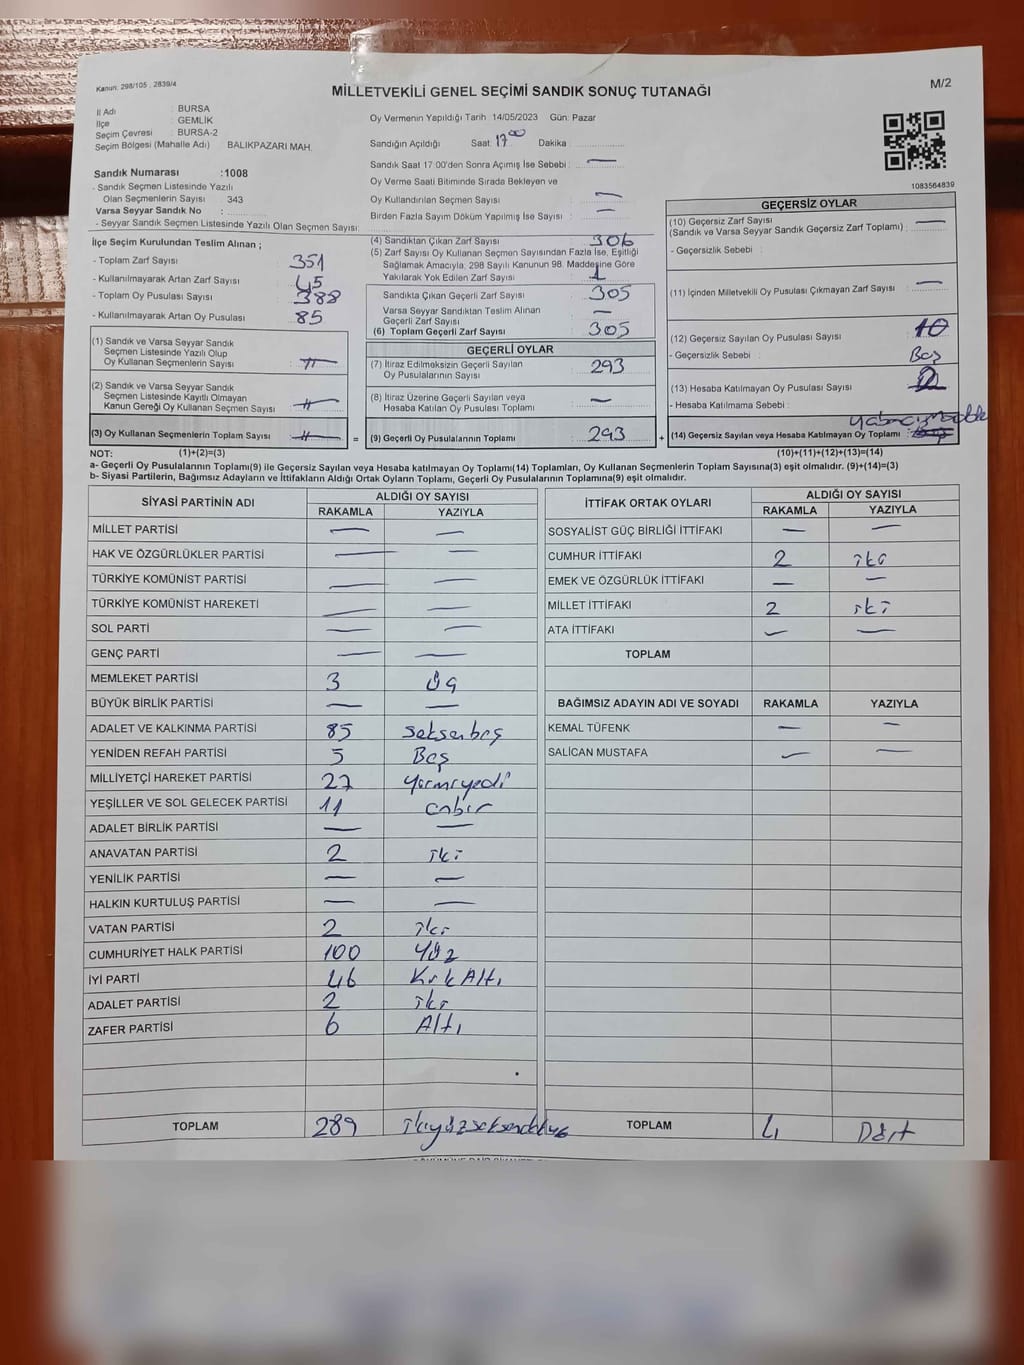 Kanun: 298/105 , 2839/4
MİLLETVEKİLİ GENEL SEÇİMİ SANDIK SONUÇ TUTANAĞI
M/2
İl Adı : BURSA
İlçe : GEMLİK
Seçim Çevresi : BURSA-2
Seçim Bölgesi (Mahalle Adı) BALIKPAZARI MAH.
Sandık Numarası :1008
- Sandık Seçmen Listesinde Yazılı
Olan Seçmenlerin Sayısı 343
Varsa Seyyar Sandık No :
- Seyyar Sandık Seçmen Listesinde Yazılı Olan Seçmen Sayısı:
Oy Vermenin Yapıldığı Tarih: 14/05/2023 Gün: Pazar
Sandığın Açıldığı Saat: 17 00 Dakika
Sandık Saat 17:00'den Sonra Açımış İse Sebebi : —
Oy Verme Saati Bitiminde Sırada Bekleyen ve
Oy Kullandırılan Seçmen Sayısı : —
Birden Fazla Sayım Döküm Yapılmış İse Sayısı : —
1083564839
İlçe Seçim Kurulundan Teslim Alınan ;
- Toplam Zarf Sayısı : 351
- Kullanılmayarak Artan Zarf Sayısı : 45
- Toplam Oy Pusulası Sayısı : 388
- Kullanılmayarak Artan Oy Pusulası : 85
(1) Sandık ve Varsa Seyyar Sandık
Seçmen Listesinde Yazılı Olup
Oy Kullanan Seçmenlerin Sayısı :
(2) Sandık ve Varsa Seyyar Sandık
Seçmen Listesinde Kayıtlı Olmayan
Kanun Gereği Oy Kullanan Seçmen Sayısı :
(3) Oy Kullanan Seçmenlerin Toplam Sayısı : =
(4) Sandıktan Çıkan Zarf Sayısı : 306
(5) Zarf Sayısı Oy Kullanan Seçmen Sayısından Fazla İse, Eşitliği
Sağlamak Amacıyla, 298 Sayılı Kanunun 98. Maddesine Göre
Yakılarak Yok Edilen Zarf Sayısı : 1
Sandıkta Çıkan Geçerli Zarf Sayısı : 305
Varsa Seyyar Sandıktan Teslim Alınan
Geçerli Zarf Sayısı : —
(6) Toplam Geçerli Zarf Sayısı : 305
GEÇERLİ OYLAR
(7) İtiraz Edilmaksizin Geçerli Sayılan
Oy Pusulalarının Sayısı : 293
(8) İtiraz Üzerine Geçerli Sayılan veya
Hesaba Katılan Oy Pusulası Toplamı : —
(9) Geçerli Oy Pusulalarının Toplamı : 293 +
GEÇERSİZ OYLAR
(10) Geçersiz Zarf Sayısı
(Sandık ve Varsa Seyyar Sandık Geçersiz Zarf Toplamı) : —
- Geçersizlik Sebebi :
(11) İçinden Milletvekili Oy Pusulası Çıkmayan Zarf Sayısı : —
(12) Geçersiz Sayılan Oy Pusulası Sayısı : 10
- Geçersizlik Sebebi : Boş
(13) Hesaba Katılmayan Oy Pusulası Sayısı : 2
- Hesaba Katılmama Sebebi :
(14) Geçersiz Sayılan veya Hesaba Katılmayan Oy Toplamı :
NOT: (1)+(2)=(3) (10)+(11)+(12)+(13)=(14)
a- Geçerli Oy Pusulalarının Toplamı(9) ile Geçersiz Sayılan veya Hesaba katılmayan Oy Toplamı(14) Toplamları, Oy Kullanan Seçmenlerin Toplam Sayısına(3) eşit olmalıdır. (9)+(14)=(3)
b- Siyasi Partilerin, Bağımsız Adayların ve İttifakların Aldığı Ortak Oyların Toplamı, Geçerli Oy Pusulalarının Toplamına(9) eşit olmalıdır.
SİYASİ PARTİNİN ADI ALDIĞI OY SAYISI
RAKAMLA YAZIYLA
MİLLET PARTİSİ — —
HAK VE ÖZGÜRLÜKLER PARTİSİ — —
TÜRKİYE KOMÜNİST PARTİSİ — —
TÜRKİYE KOMÜNİST HAREKETİ — —
SOL PARTİ — —
GENÇ PARTİ — —
MEMLEKET PARTİSİ 3 Üç
BÜYÜK BİRLİK PARTİSİ — —
ADALET VE KALKINMA PARTİSİ 85 Seksenbeş
YENİDEN REFAH PARTİSİ 5 Beş
MİLLİYETÇİ HAREKET PARTİSİ 27 Yirmiyedi
YEŞİLLER VE SOL GELECEK PARTİSİ 11 Onbir
ADALET BİRLİK PARTİSİ — —
ANAVATAN PARTİSİ 2 iki
YENİLİK PARTİSİ — —
HALKIN KURTULUŞ PARTİSİ — —
VATAN PARTİSİ 2 iki
CUMHURİYET HALK PARTİSİ 100 Yüz
İYİ PARTİ 46 Kırk Altı
ADALET PARTİSİ 2 iki
ZAFER PARTİSİ 6 Altı
TOPLAM 289 ikiyüzseksendokuz
İTTİFAK ORTAK OYLARI ALDIĞI OY SAYISI
RAKAMLA YAZIYLA
SOSYALİST GÜÇ BİRLİĞİ İTTİFAKI — —
CUMHUR İTTİFAKI 2 iki
EMEK VE ÖZGÜRLÜK İTTİFAKI — —
MİLLET İTTİFAKI 2 iki
ATA İTTİFAKI — —
TOPLAM
BAĞIMSIZ ADAYIN ADI VE SOYADI RAKAMLA YAZIYLA
KEMAL TÜFENK — —
SALİCAN MUSTAFA — —
TOPLAM 4 Dört